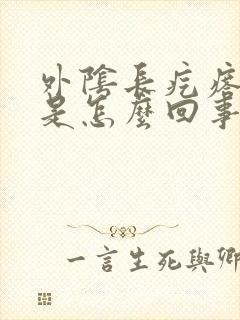 外陰長疙瘩
是怎麼回事
一言生死與卿